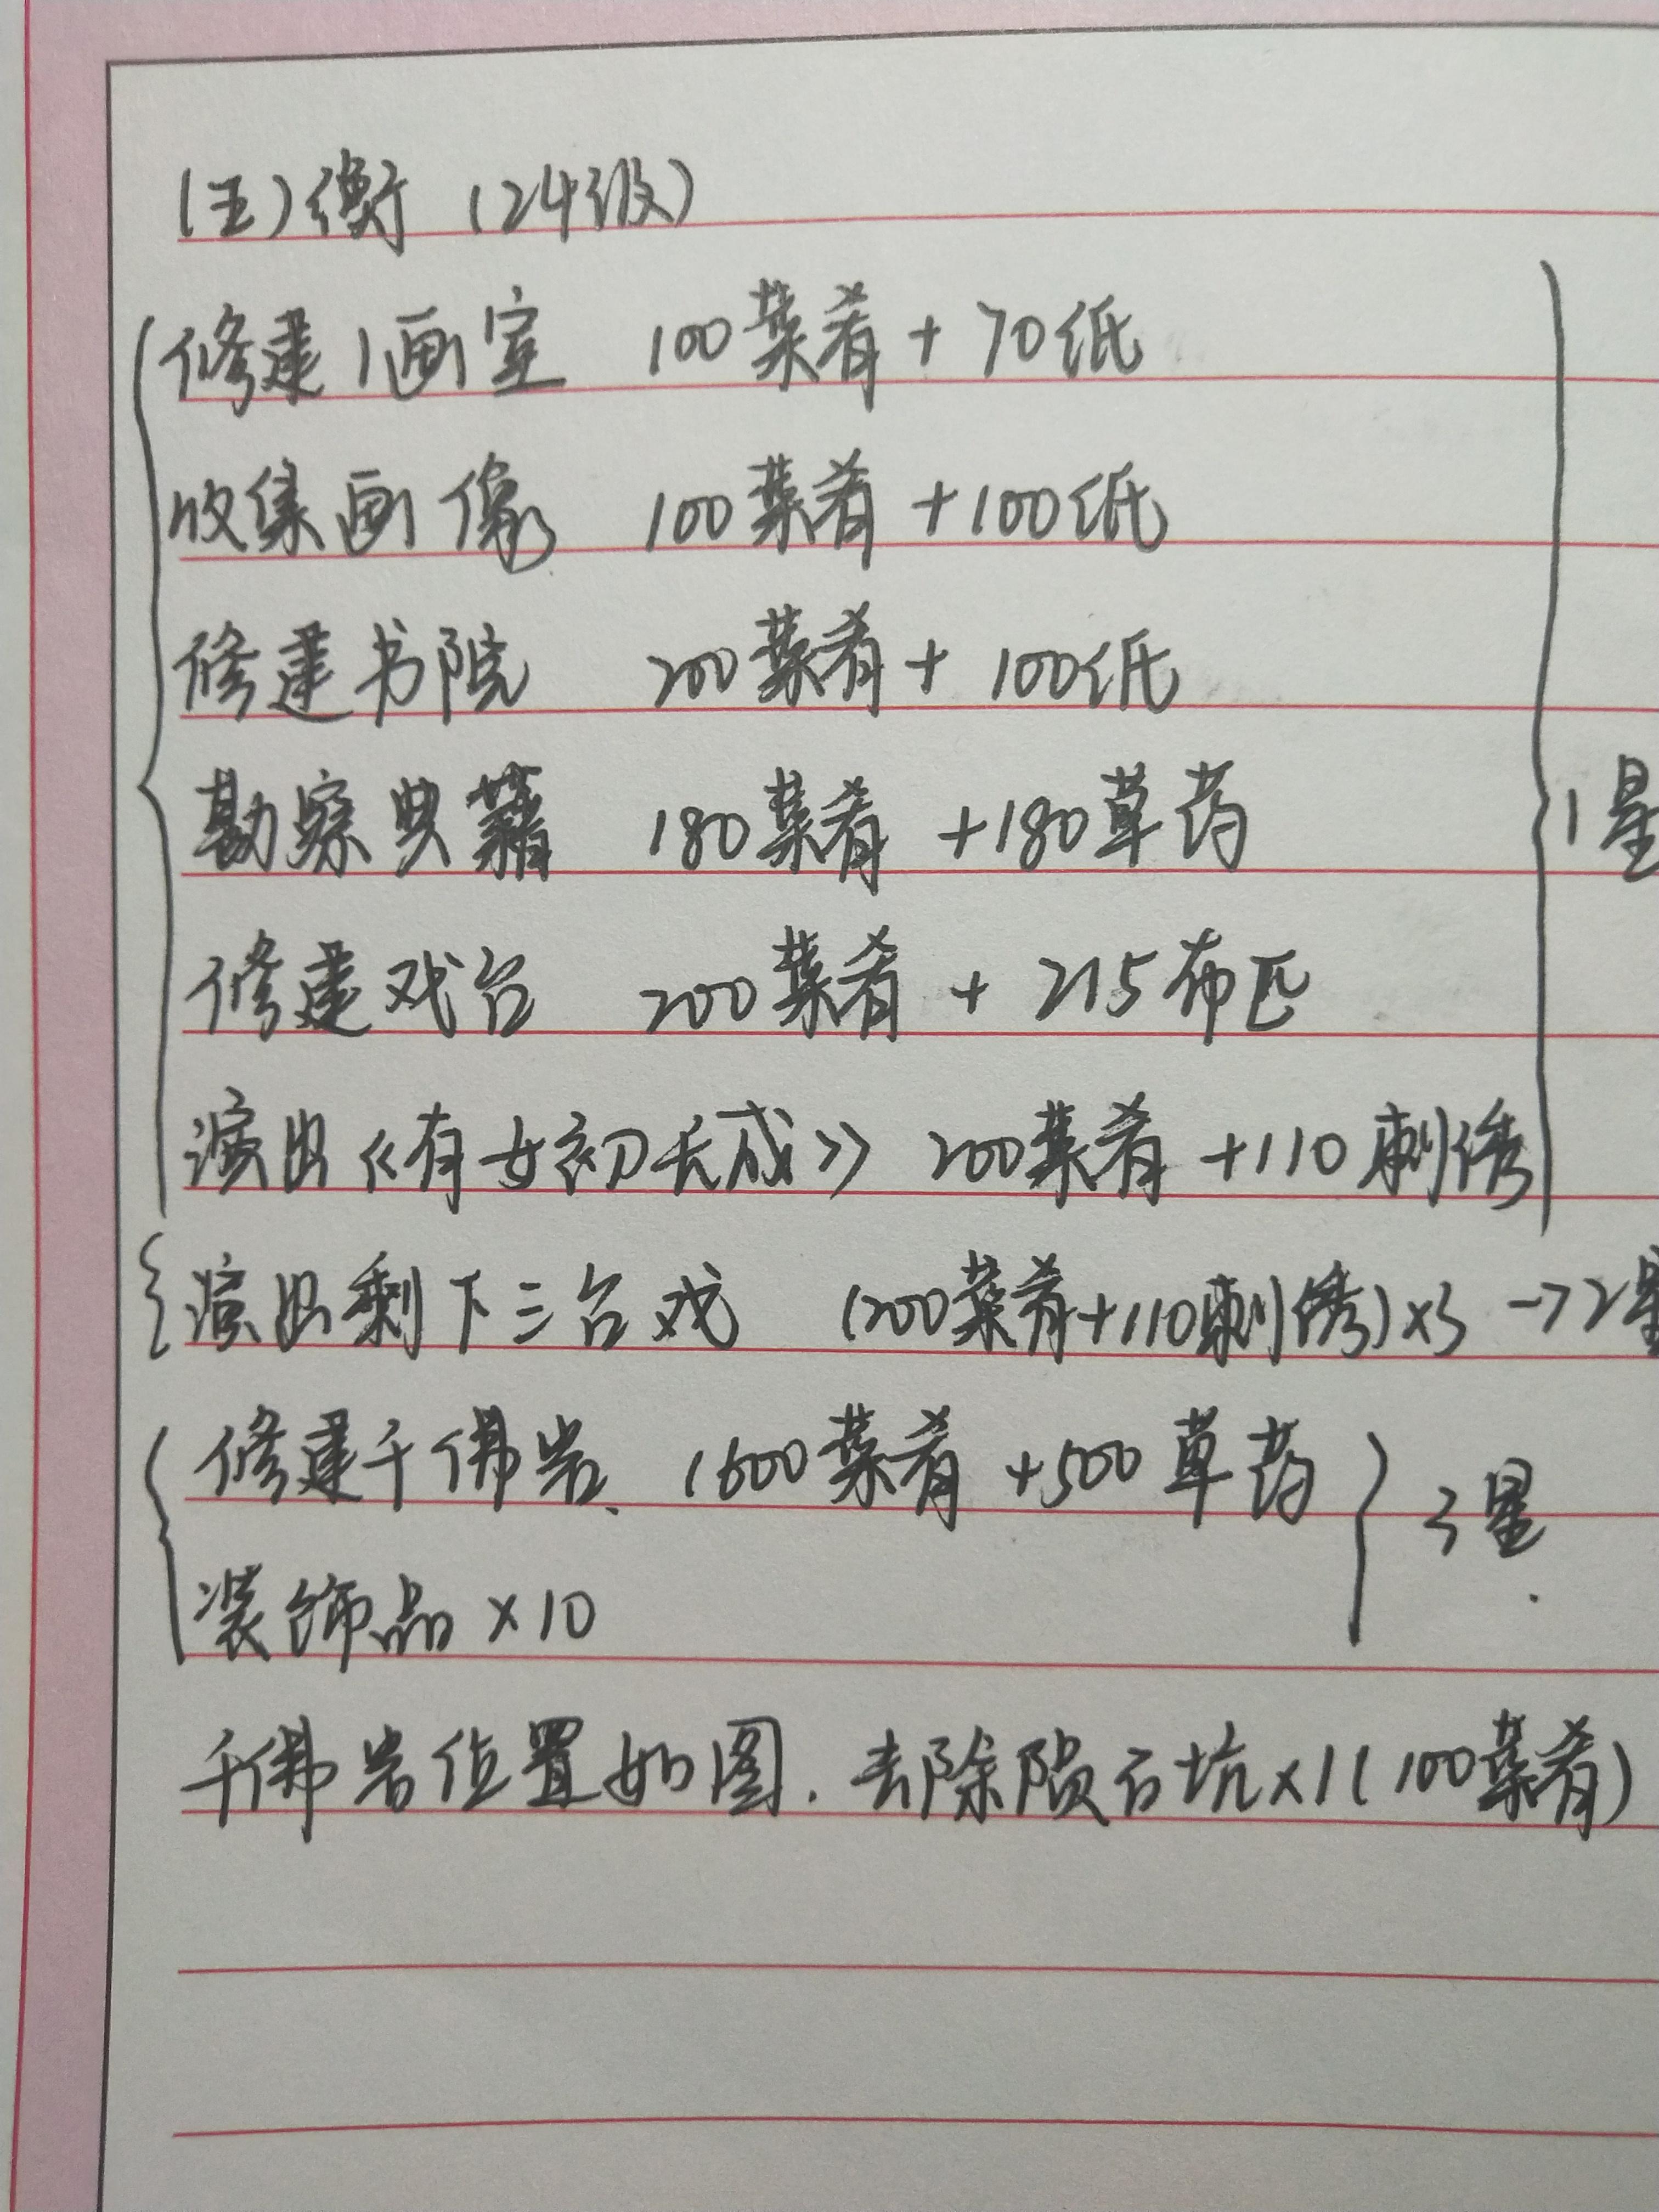 (五)衡 (24级)
修建1画室 100菜肴 + 70纸
收集画像 100菜肴 + 100纸
修建书院 200菜肴 + 100纸
勘察典藉 180菜肴 +180草药
1星
修建戏台 200菜肴 + 215布匹
演出《有女初长成》 200菜肴 +110刺绣
演出剩下三台戏 (200菜肴+110刺绣)×3 →2星
修建千佛岩、1600菜肴 +500草药
3星
装饰品×10
千佛岩位置如图. 去除陨石坑×1(100菜肴)